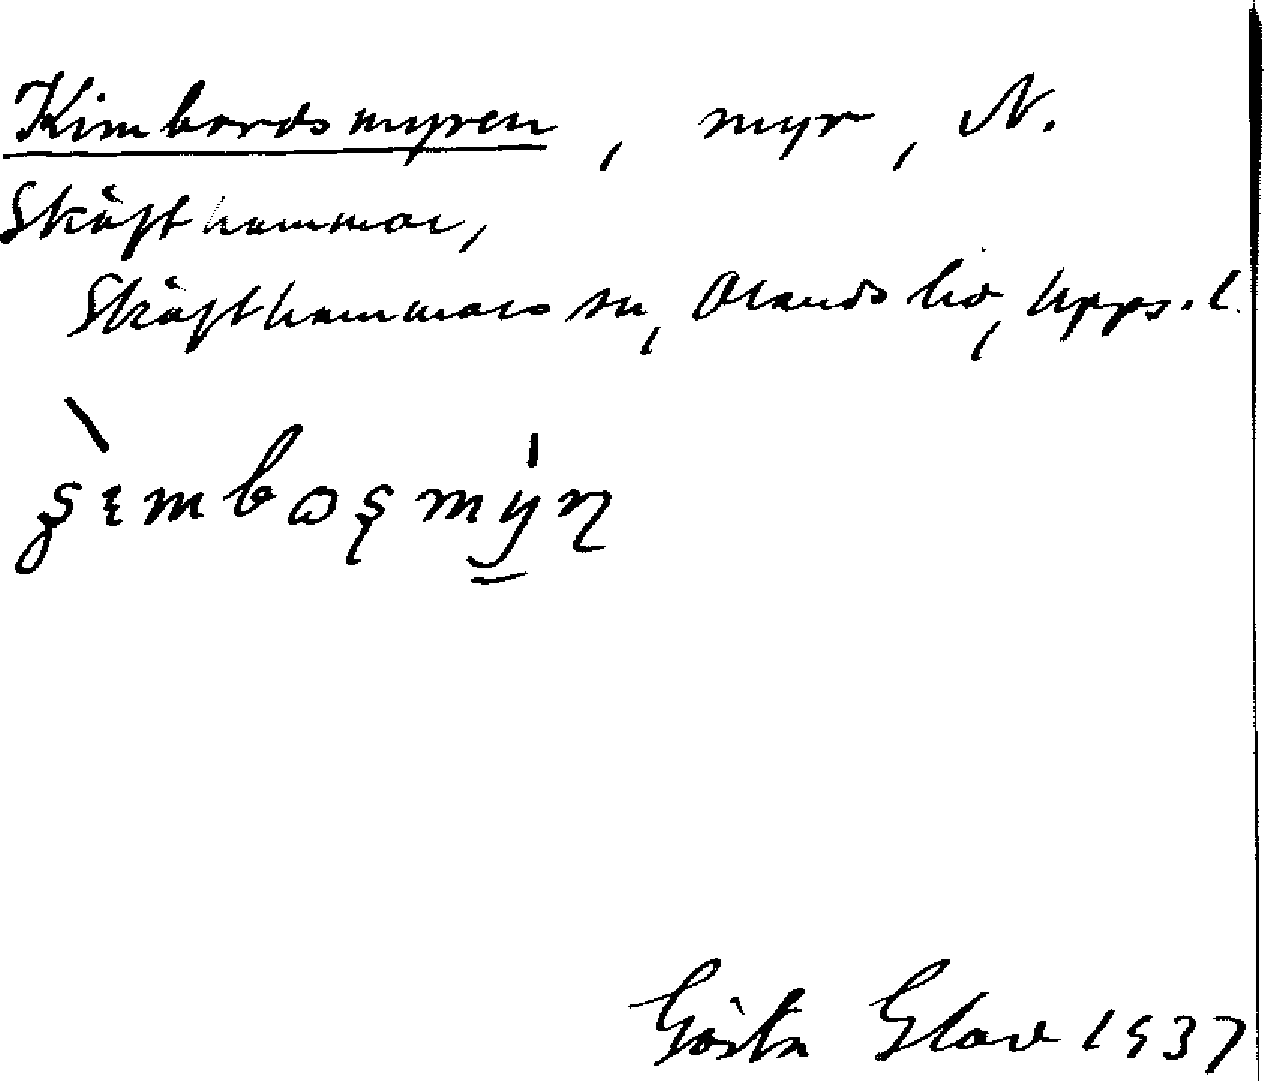 Kimbordsmyren, myr, N.
Skäfthammar,
Skäfthammars sn, Olands hd, Upps. l.
Gösta 1937